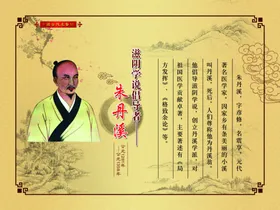 滋阴学说倡导者——
朱丹溪
朱丹溪，字彦修，名震亨，元代
著名医学家，因家乡有条美丽的小溪
叫丹溪，死后，人们尊称他为丹溪翁。
他倡导滋阴学说，创立丹溪学派，对
祖国医学贡献卓著，主要著述有《局
方发挥》、《格致余论》等。